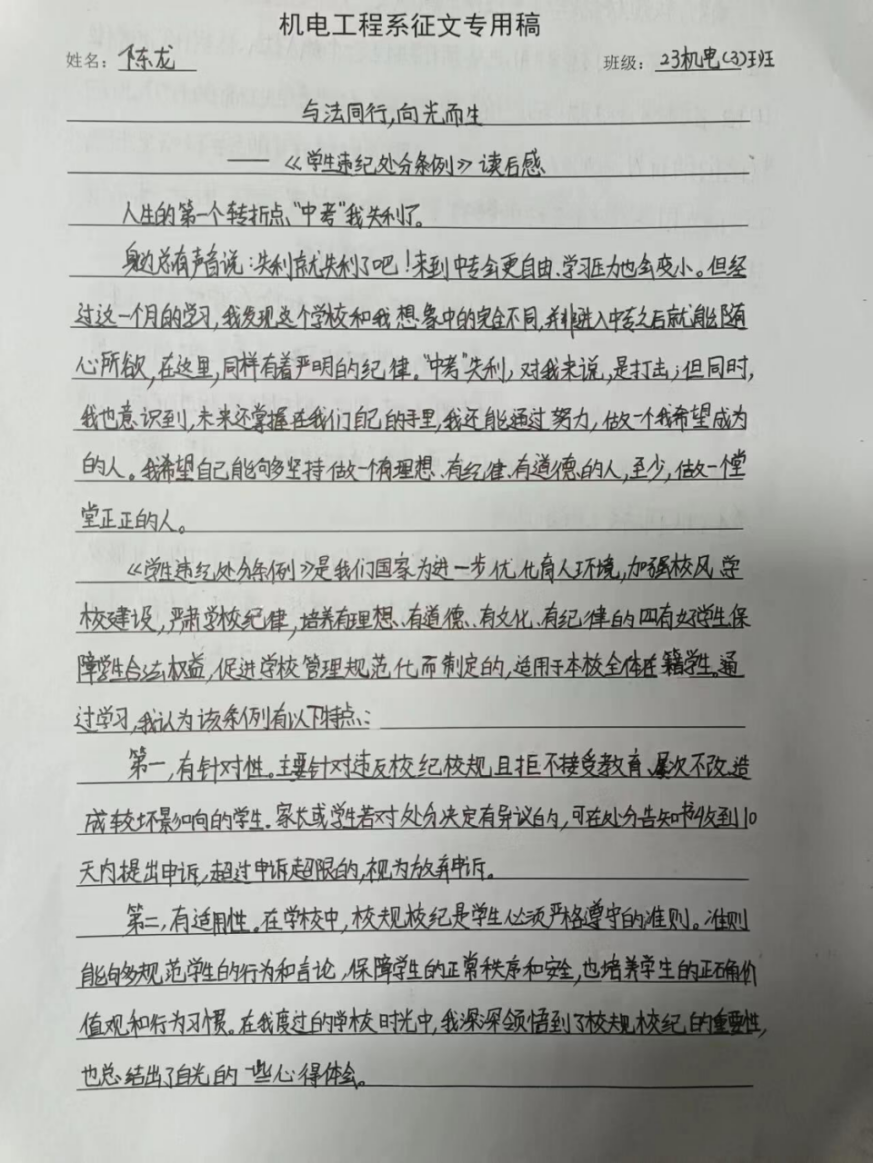 机电工程系征文专用稿
姓名：陈龙 班级：23机电(3)班
与法同行,向光而生
——《学生违纪处分条例》读后感
人生的第一个转折点、“中考”我失利了。
身边总有声音说：失利就失利了吧！来到中专会更自由、学习压力也会变小。但经
过这一个月的学习,我发现这个学校和我想象中的完全不同,并非进入中专之后就能随
心所欲,在这里,同样有着严明的纪律。“中考”失利,对我来说,是打击;但同时,
我也意识到,未来还掌握在我们自己的手里,我还能通过努力,做一个我希望成为
的人。我希望自己能够坚持做一个有理想、有纪律、有道德的人,至少,做一个堂
堂正正的人。
《学生违纪处分条例》是我们国家为进一步优化育人环境,加强校风、学
校建设,严肃学校纪律,培养有理想、有道德、有文化、有纪律的四有好学生保
障学生合法权益,促进学校管理规范化而制定的,适用于本校全体在籍学生。通
过学习,我认为该条例有以下特点：
第一,有针对性。主要针对违反校纪校规且拒不接受教育、屡次不改、造
成较坏影响的学生.家长或学生若对处分决定有异议的,可在处分告知书收到10
天内提出申诉,超过申诉超限的,视为放弃申诉。
第二,有适用性。在学校中,校规校纪是学生必须严格遵守的准则。准则
能够规范学生的行为和言论,保障学生的正常秩序和安全,也培养学生的正确价
值观和行为习惯。在我度过的学校时光中,我深深领悟到了校规校纪的重要性,
也总结出了自光的一些心得体会。